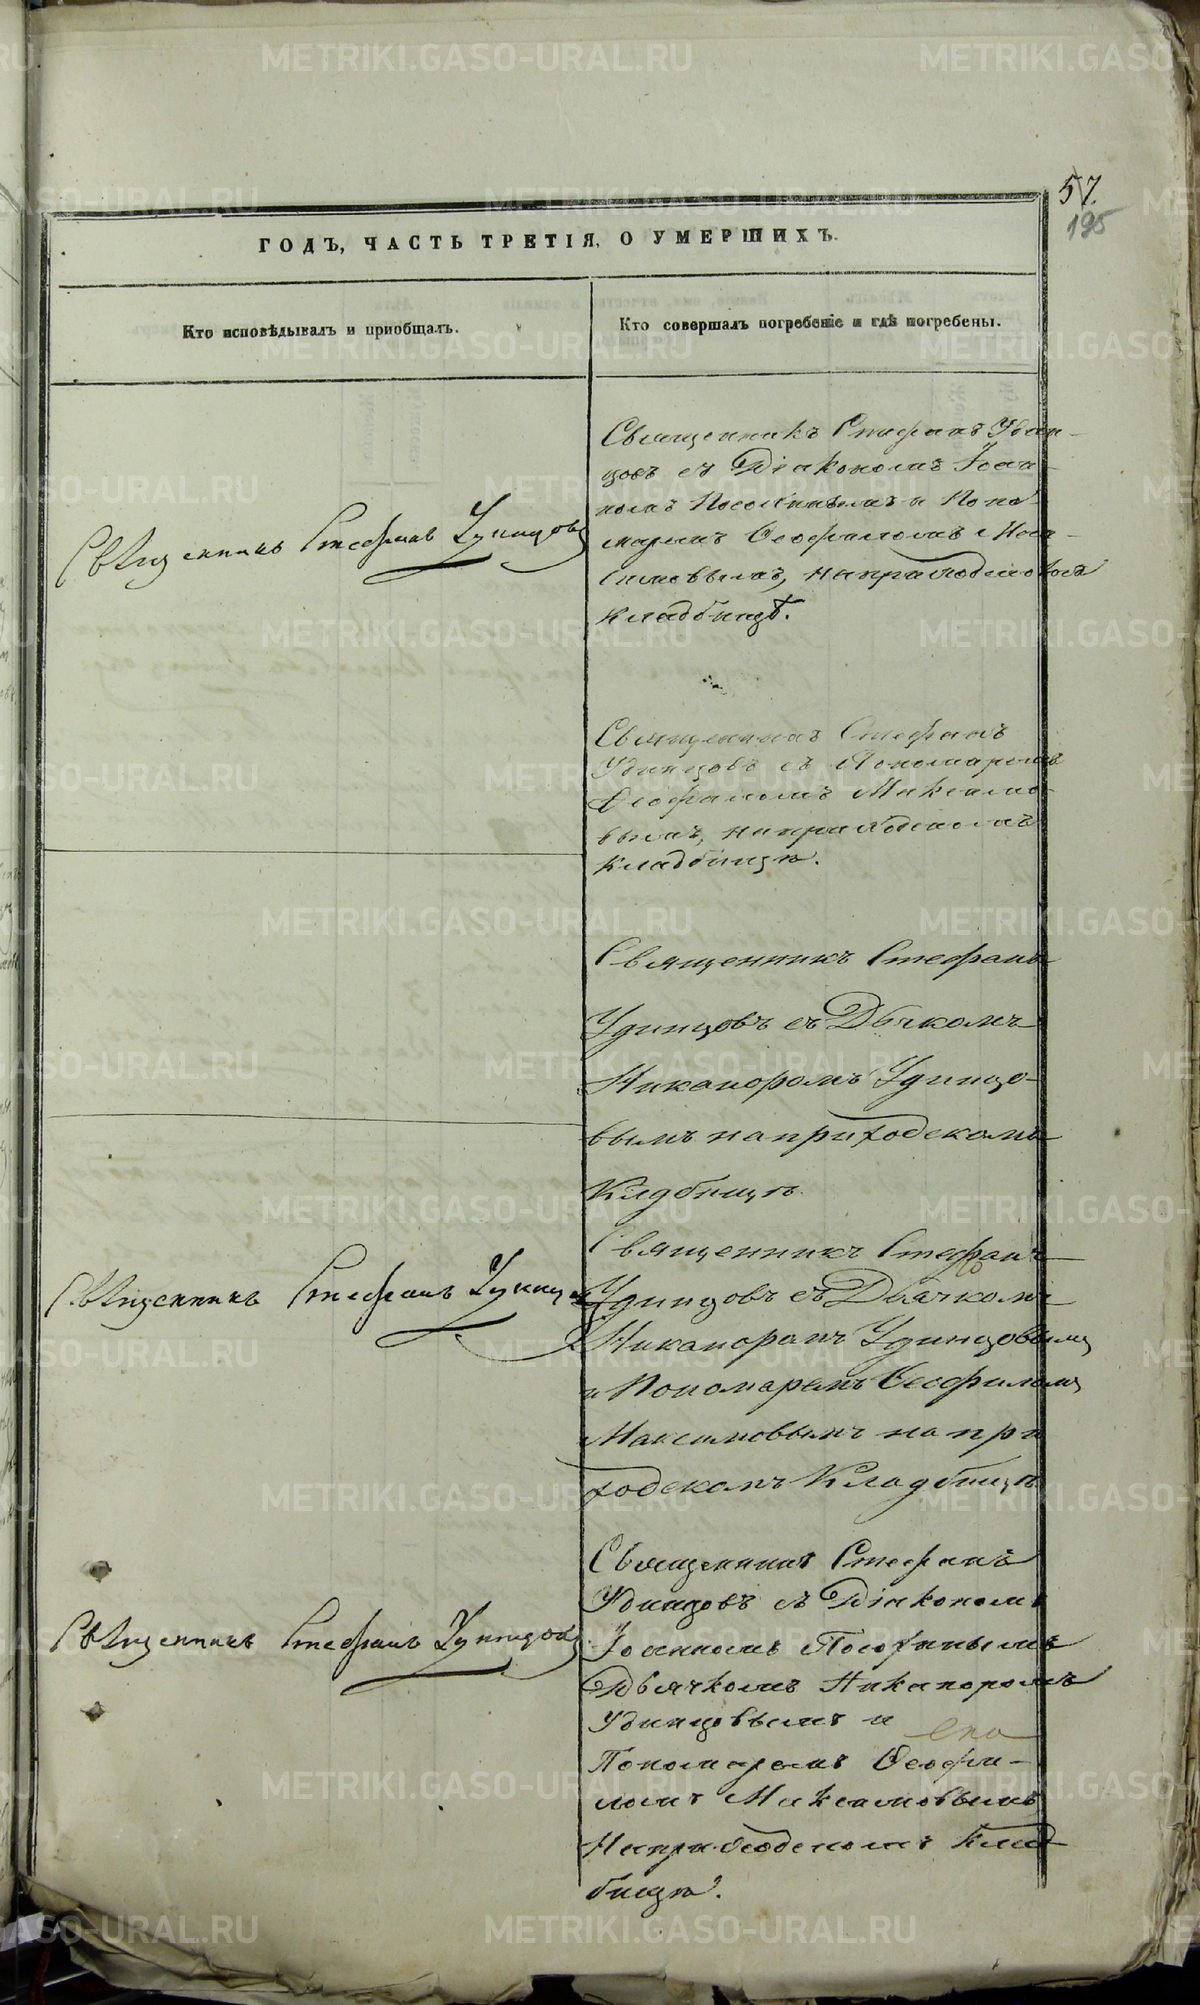 57.
195
ГОДЪ, ЧАСТЬ ТРЕТІЯ, О УМЕРШИХЪ.
Кто исповѣдывалъ и пріобщалъ.
Кто совершалъ погребеніе и гдѣ погребены.
Священникъ Стефанъ Удинцовъ
Священникъ Стефанъ Удин-
цовъ съ Діакономъ Іоан-
номъ Посохинымъ и Поно-
маремъ Ѳеофиломъ Мак-
симовымъ, на приходскомъ
кладбищѣ.
Священникъ Стефанъ
Удинцовъ съ Пономаремъ
Ѳеофиломъ Максимо-
вымъ, на приходскомъ
кладбищѣ.
Священникъ Стефанъ
Удинцовъ съ Дьячкомъ
Никаноромъ Удинцо-
вымъ на приходскомъ
Клдбищѣ
Священникъ Стефанъ Удинцовъ
Священникъ Стефанъ
Удинцовъ съ Дьячкомъ
Никаноромъ Удинцовымъ
и Пономаремъ Ѳеофиломъ
Максимовымъ на при
ходскомъ Кладбищѣ
Священникъ Стефанъ Удинцовъ
Священникъ Стефанъ
Удинцовъ съ Діакономъ
Іоанномъ Посохинымъ
Дьячкомъ Никаноромъ
Удинцовымъ и
Пономаремъ Ѳеофи-
ломъ Максимовымъ
На приходскомъ клад
бищѣ.
METRIKI.GASO-URAL.RU